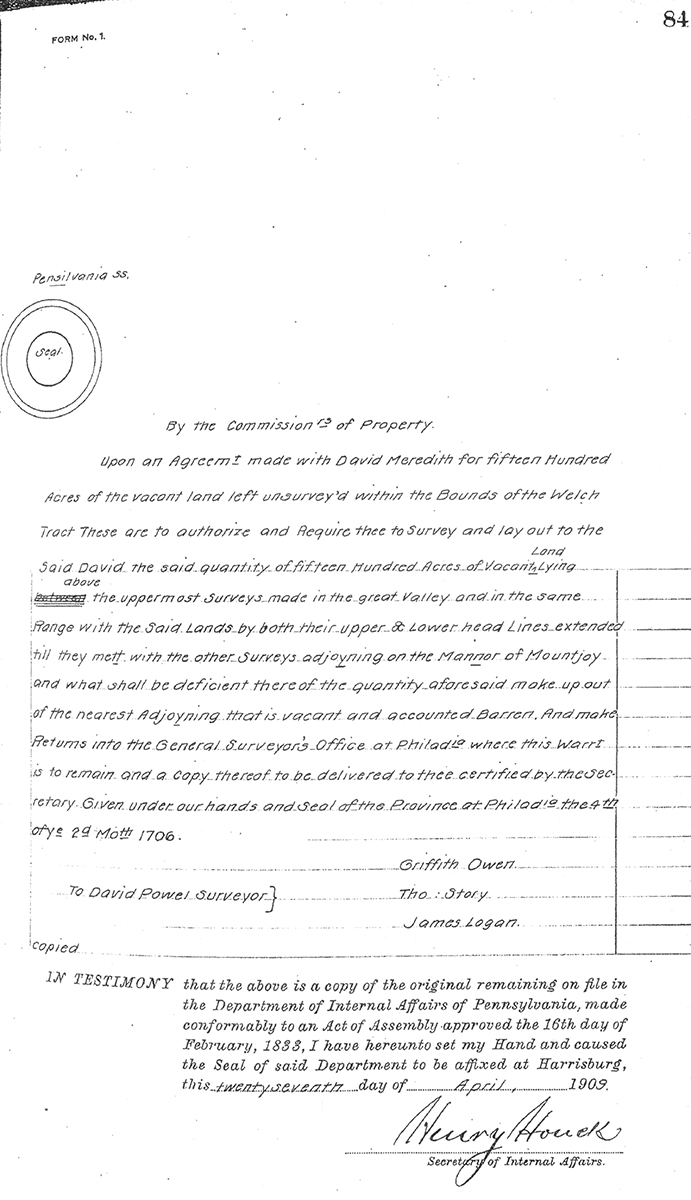 84
FORM No. 1.
Pensilvania SS.
Seal.
By the Commission.rs of Property.
Upon an Agreemt made with David Meredith for fifteen Hundred
Acres of the vacant land left unsurvey'd within the Bounds of the Welch
Tract These are to authorize and Require thee to Survey and lay out to the
Land
Said David the said quantity of fifteen Hundred Acres of Vacant Lying
above
between the uppermost Surveys made in the great Valley and in the same
Range with the Said Lands by both their upper & Lower head Lines extended
till they mett with the other Surveys adjoyning on the Mannor of Mountjoy
and what shall be deficient there of the quantity aforesaid make up out
of the nearest Adjoyning that is vacant and accounted Barren. And make
Returns into the General Surveyor's Office at Philadia where this Warrt
is to remain and a Copy thereof to be delivered to thee certified by the Sec-
retary. Given under our hands and Seal of the Province at Philadia the 4th
of ye 2d Moth 1706.
Griffith Owen
To David Powel Surveyor}
Tho: Story
James Logan.
copied
IN TESTIMONY that the above is a copy of the original remaining on file in
the Department of Internal Affairs of Pennsylvania, made
conformably to an Act of Assembly approved the 16th day of
February, 1833, I have hereunto set my Hand and caused
the Seal of said Department to be affixed at Harrisburg,
this twenty seventh day of April, 1909.
Henry Houck
Secretary of Internal Affairs.